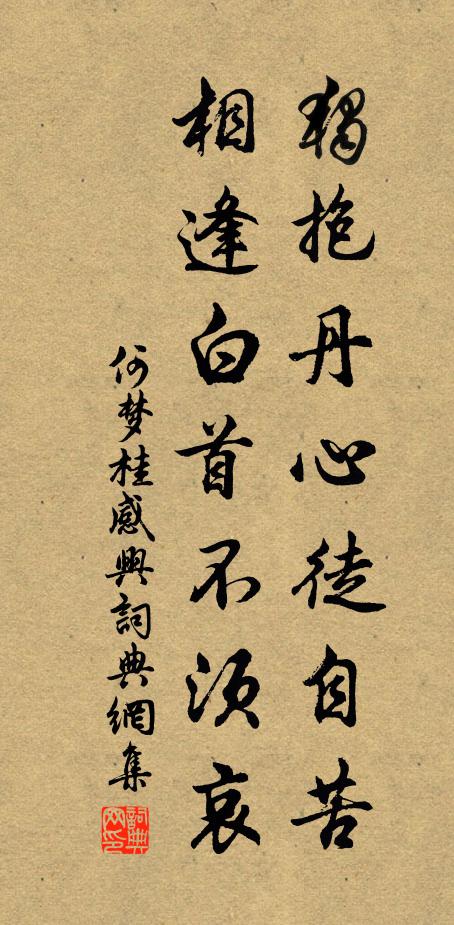 獨抱丹心徒自苦
相逢白首不須哀
何梦桂感興詞典網集
詞典網印